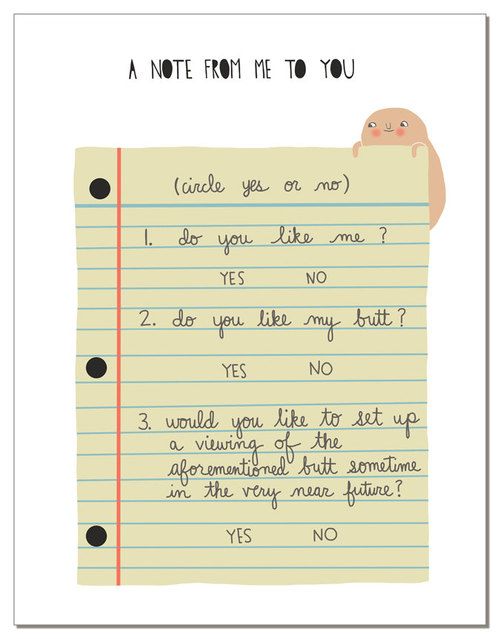 A NOTE FROM ME TO YOU
(circle yes or no)
1. do you like me ?
YES NO
2. do you like my butt ?
YES NO
3. would you like to set up
a viewing of the
aforementioned butt sometime
in the very near future?
YES NO